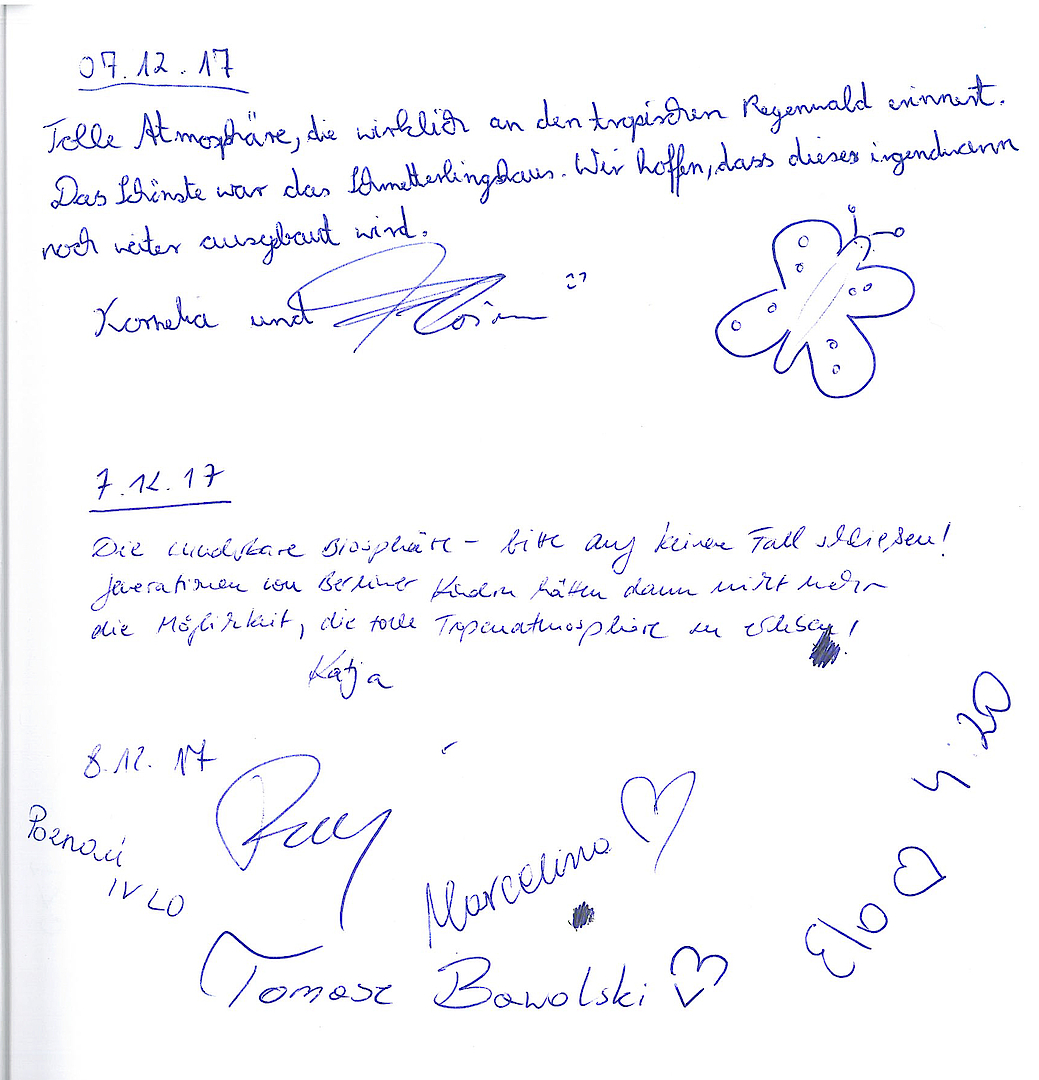 07.12.17
Tolle Atmosphäre, die wirklich an den tropischen Regenwald erinnert.
Das Schönste war das Schmetterlingshaus. Wir hoffen, dass dieses irgendwann
noch weiter ausgebaut wird.
Kornelia und
7.12.17
Die wunderbare Biosphäre – bitte auf keinen Fall schließen!
Generationen von Berliner Kindern hätten dann nicht mehr
die Möglichkeit, die tolle Tropenatmosphäre zu erleben!
Katja
8.12.17
Poznań
IV LO
Marcelina
Elo 4:20
Tomasz Bawolski